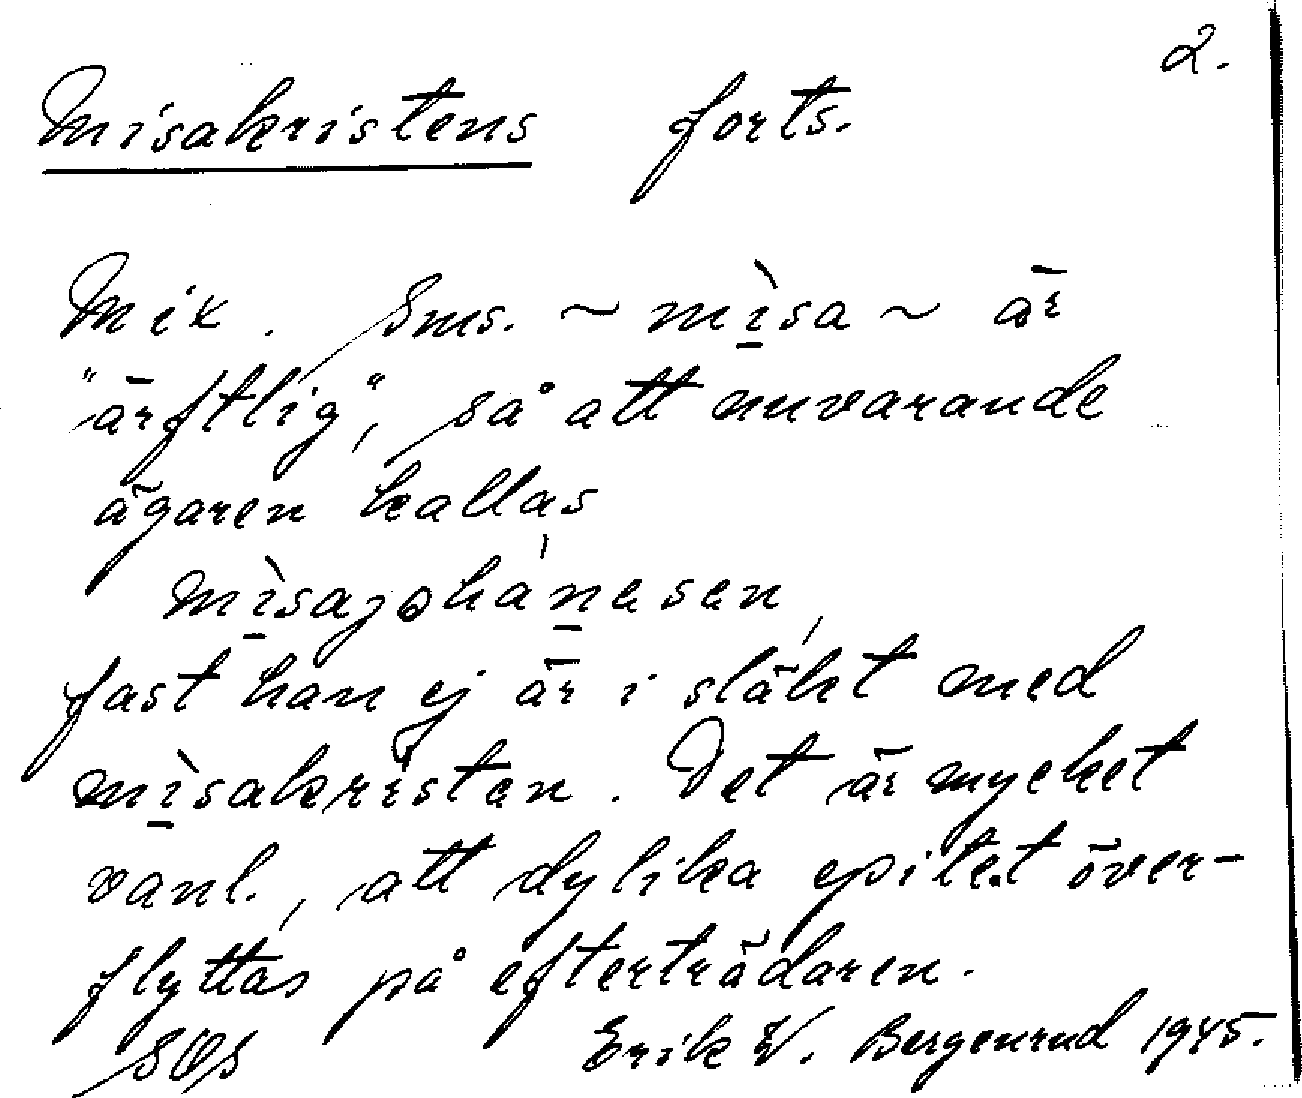 2.
Misakristens forts.
Mix. Sms. ~ mì̲sa ~ är
"ärftlig", så att nuvarande
ägaren kallas
mì̲sajohán̲asan,
fast han ej är i släkt med
mì̲sakristan. Det är mycket
vanl., att dylika epitet över-
flyttas på efterträdaren.
Erik W. Bergenrud 1945.